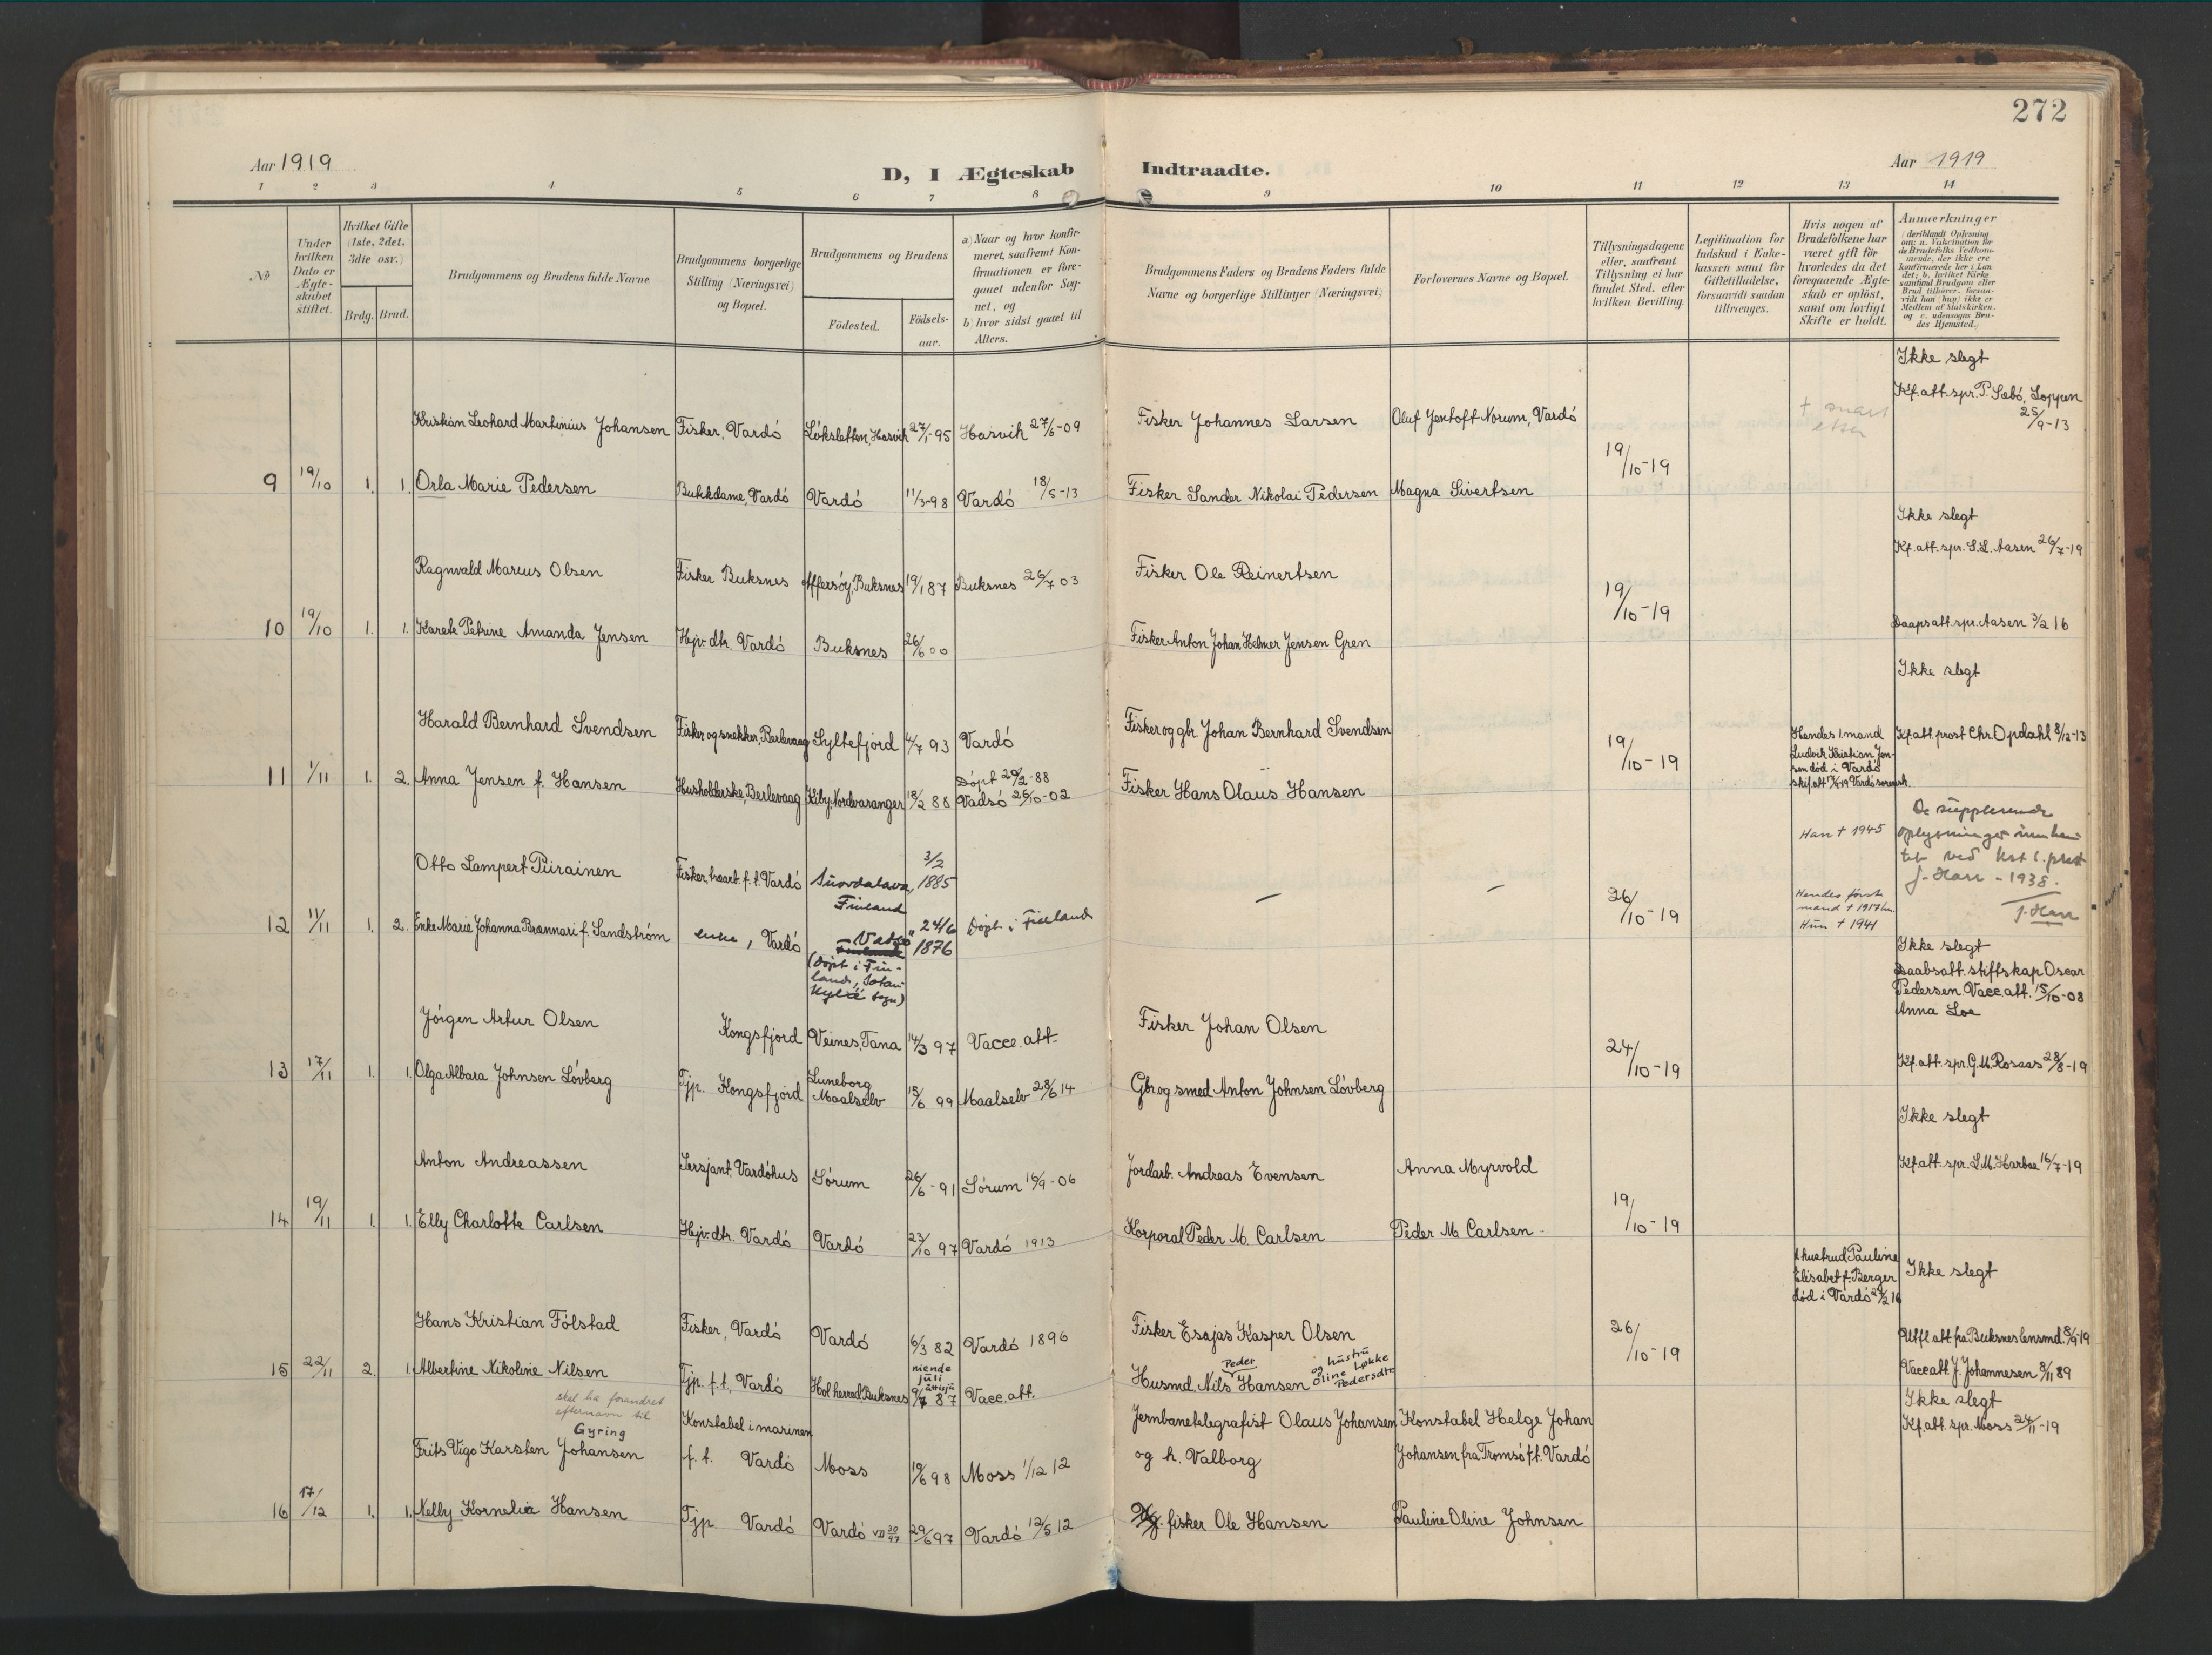 272
Aar 1919
D, I Ægteskab Indtraadte.
Aar 1919
1 2 3 4 5 6 7 8 9 10 11 12 13 14
No
Under hvilken Dato er Ægteskabet stiftet.
Hvilket Gifte (1ste, 2det, 3die osv.)
Brdg. Brud.
Brudgommens og Brudens fulde Navne
Brudgommens borgerlige Stilling (Næringsvei) og Bopæl.
Brudgommens og Brudens
Fødested.
Fødselsaar.
a) Naar og hvor konfirmeret, saafremt Konfirmationen er foregaaet udenfor Sognet, og
b) hvor sidst gaaet til Alters.
Brudgommens Faders og Brudens Faders fulde Navne og borgerlige Stillinger (Næringsvei)
Forlovernes Navne og Bopæl.
Tillysningsdagene eller, saafremt Tillysning ei har fundet Sted, efter hvilken Bevilling.
Legitimation for Indskud i Enkekassen samt for Giftetilladelse, forsaavidt saadan tiltrænges.
Hvis nogen af Brudefolkene har været gift før hvorledes da det foregaaende Ægteskab er opløst, samt om lovligt Skifte er holdt.
Anmærkninger (deriblandt Oplysning om: a. Vakcination for de Brudefolks Vedkommende, der ikke ere konfirmerede her i Landet; b. hvilket Kirkesamfund Brudgom eller Brud tilhører, forsaavidt han (hun) ikke er Medlem af Statskirken, og c. udensogns Brudes Hjemsted.)
Ikke slegt
Kf. att. spr. P. Sæbö, Loppen 25/9-13
Kristian Leohard Martinius Johansen Fisker, Vardö Löksletten, Hasvik 27/1-95 Hasvik 27/6-09 Fisker Johannes Larsen Oluf Jentoft Norum, Vardö
9 19/10 1. 1. Orla Marie Pedersen Bukkdame, Vardö Vardö 11/3-98 Vardö 18/5-13 Fisker Sander Nikolai Pedersen Magna Sivertsen 19/10-19
Ikke slegt
Kf. att. spr. S.L. Aasen 26/7-19
Ragnvald Marcus Olsen Fisker Buksnes Offersöy, Buksnes 19/1 87 Buksnes 26/7 03 Fisker Ole Reinertsen
10 19/10 1. 1. Karete Petrine Amanda Jensen Hjv. dtr. Vardö Buksnes 26/6 00 Fisker Anton Johan Helmer Jensen Gren 19/10-19 Daapsatt. spr. Aasen 3/2 16
Ikke slegt
Harald Bernhard Svendsen Fisker og snekker, Berlevaag Syltefjord 4/7 93 Vardö Fisker og gbr. Johan Bernhard Svendsen
Hendes 1. mand Ludvik Kristian Jensen död i Vardö
Kf. att. prost Chr. Opdahl 8/12-13
11 1/11 1. 2. Anna Jensen f. Hansen Husholderske, Berlevaag Kiby, Nordvaranger 18/2 88 Döpt 29/2-88 Vadsö 26/10-02 Fisker Hans Olaus Hansen 19/10-19
De supplerende oplysninger innhentet ved J. Harr - 1938.
J. Harr
Han † 1945
Otto Lampert Piirainen Fisker, f. t. Vardö Finland 3/2 1885
12 11/11 1. 2. Enke Marie Johanna Brænnari f. Sandström enke, Vardö Vadsö (döpt i Finland, 24/6 1876 Döpt i Finland 26/10-19
Hendes förste mand † 1917
Hun † 1941
Ikke slegt
Daabsatt. stiftskap. Oscar Pedersen. Vacc. att. 15/10-08 Anna Loe
Jörgen Artur Olsen Kongsfjord Veines, Tana 14/3 97 Vacc. att. Fisker Johan Olsen
13 17/11 1. 1. Olga Albara Johnsen Lövberg Tjp. Kongsfjord Luneborg Maalselv 15/6 99 Maalselv 28/6 14 Gbr og smed Anton Johnsen Lövberg 24/10-19 Kf. att. spr. G.M. Rosaas 28/8-19
Ikke slegt
Anton Andreassen Sersjant, Vardöhus Sörum 26/6-91 Sörum 16/9-06 Jordarb. Andreas Evensen Anna Myrvold Kf. att. spr. L.M. Harboe 16/7-19
14 19/11 1. 1. Elly Charlotte Carlsen Hjv. dtr. Vardö Vardö 23/10 97 Vardö 1913 Korporal Peder M. Carlsen Peder M. Carlsen 19/10-19
1 hustrud Pauline Elisabet f. Berger död i Vardö
Ikke slegt
Hans Kristian Fölstad Fisker, Vardö Vardö 6/3 82 Vardö 1896 Fisker Esajas Kasper Olsen Utfl. att. fra Buksnes lensmd.
15 22/11 2. 1. Albertine Nikoline Nilsen Tjp. f. t. Vardö Hol herred, Buksnes niende juli 9/7 87 Vacc. att. Husmd. Nils Peder Hansen og hustru Oline Løkke Pedersdtr. 26/10-19 Vacc att. J. Johannesen 8/11 89
skal ha forandret efternavn til Gyring
Ikke slegt
Kf. att. spr. Moss 24/11-19
Frits Vigo Karsten Johansen Konstabel i marinen f. t. Vardö Moss 19/6 98 Moss 1/12 12 Jernbanetelegrafist Olaus Johansen og h. Valborg Konstabel Helge Johan Johansen fra Tromsö f.t. Vardö
16 17/12 1. 1. Nelly Kornelia Hansen Tjp. Vardö Vardö 29/6 97 Vardö 12/5 12 fisker Ole Hansen Pauline Oline Johnsen